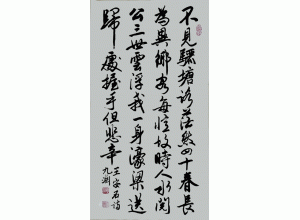 不見驪塘路茫然四十春長
為異鄉客每憶故時人水閱
公三世雲浮我一身濠梁送
歸處握手但悲辛
王安石詩
九淵